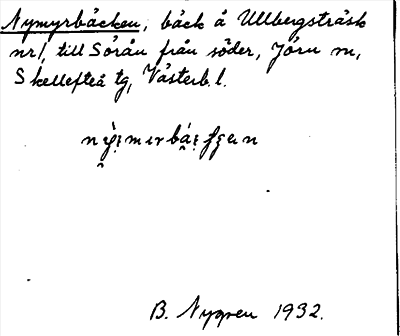 Nymyrbäcken, bäck å Ullbergsträsk
nr 1, till Söråu från söder, Jörn sn,
Skellefteå tg, Västerb. l.
B. Nygren 1932.